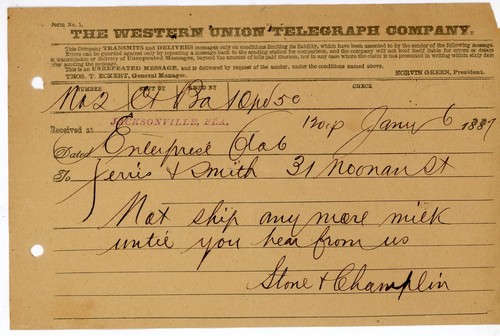 Form No. 1.
THE WESTERN UNION TELEGRAPH COMPANY.
This Company TRANSMITS and DELIVERS messages only on conditions limiting its liability, which have been assented to by the sender of the following message.
Errors can be guarded against only by repeating a message back to the sending station for comparison, and the company will not hold itself liable for errors or delays
in transmission or delivery of Unrepeated Messages, beyond the amount of tolls paid thereon, nor in any case where the claim is not presented in writing within sixty days
after sending the message.
This is an UNREPEATED MESSAGE, and is delivered by request of the sender, under the conditions named above.
THOS. T. ECKERT, General Manager. NORVIN GREEN, President.
NUMBER SENT BY CHECK
No 2 Ct Ba 10 pd 50
JACKSONVILLE, FLA.
Received at Jany 6 1887
Dated Enterprise
To Ferris & Smith 31 Noonan St
Not ship any more milk
until you hear from us
Stone & Champlin